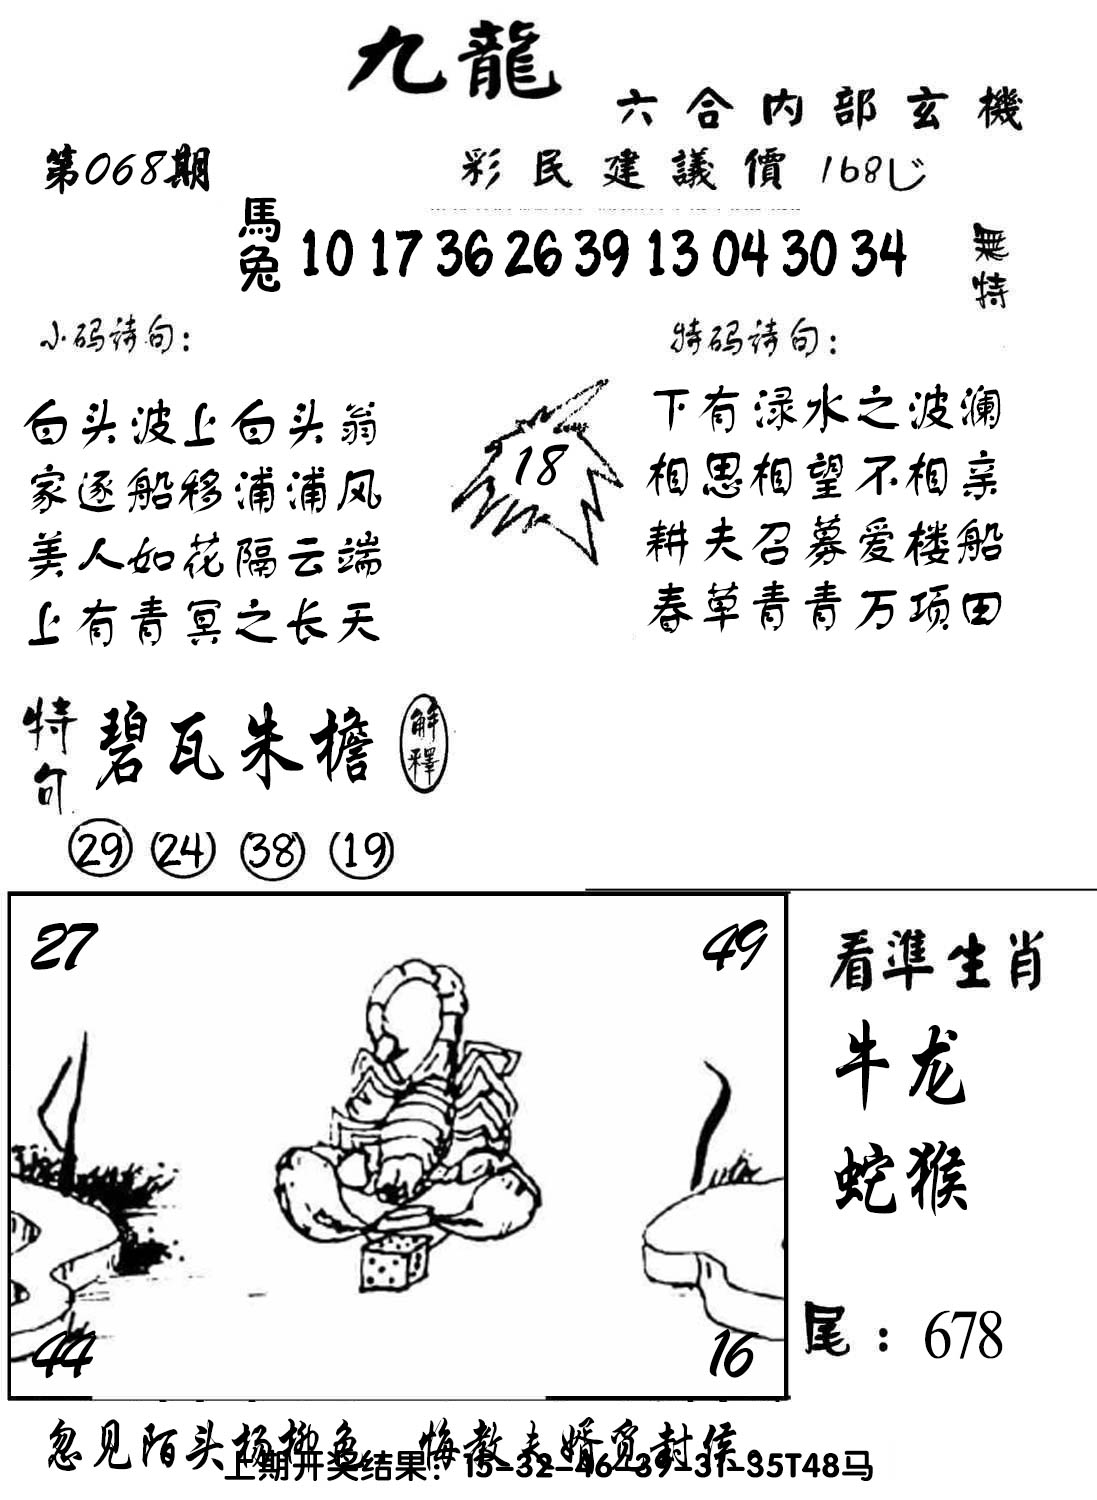 九龍
六合内部玄機
第068期
彩民建議價168
馬兔 10 17 36 26 39 13 04 30 34 無特
小码诗句：
特码诗句：
白头波上白头翁
家逐船移浦浦风
美人如花隔云端
上有青冥之长天
18
下有渌水之波澜
相思相望不相亲
耕夫召募爱楼船
春草青青万项田
特句 碧瓦朱檐 解釋
29 24 38 19
27 49
44 16
看準生肖
牛龙
蛇猴
尾：678
忽见陌头杨柳色 悔教夫婿觅封侯.
上期开奖结果：15-32-46-39-31-35T48马